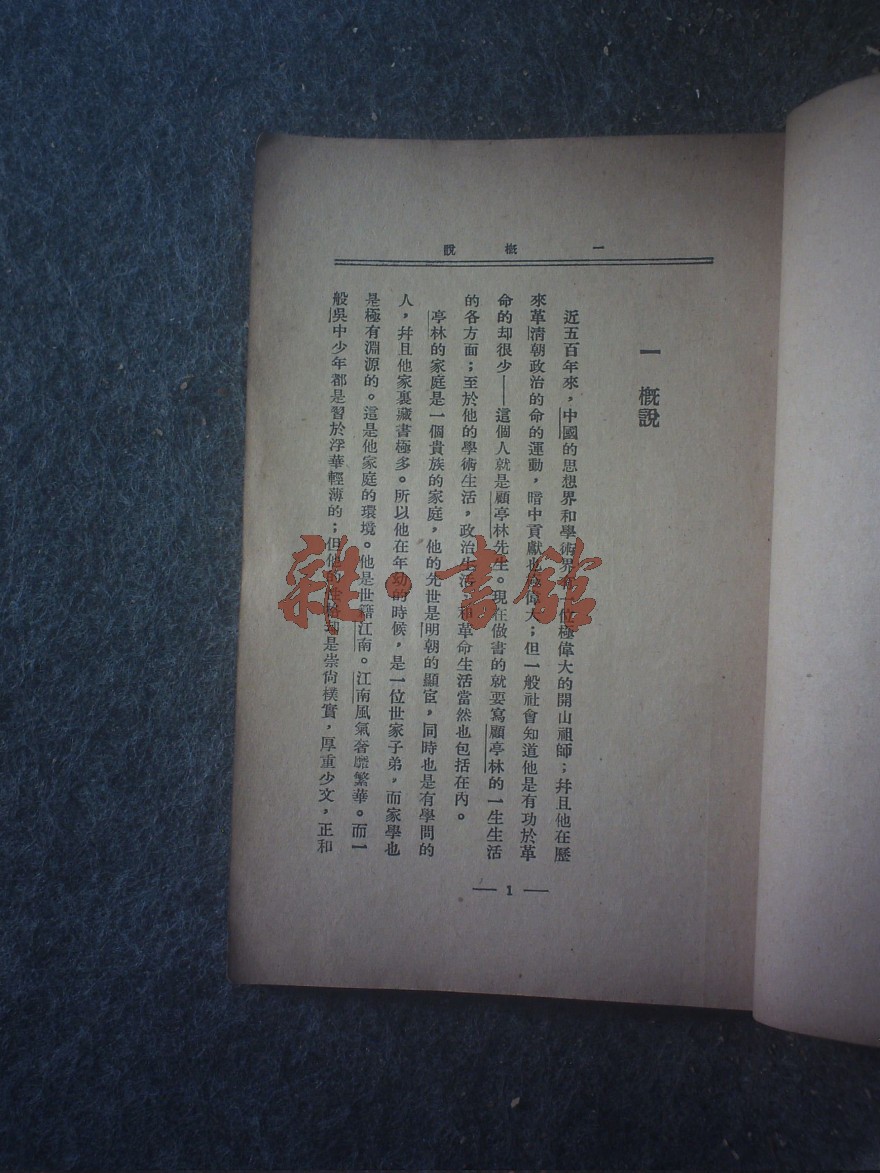 一　概說
一　概說
近五百年來，中國的思想界和學術界有一位極偉大的開山祖師；幷且他在歷
來革清朝政治的命的運動，暗中貢獻也極偉大；但一般社會知道他是有功於革
命的却很少——這個人就是顧亭林先生。現在做書的就要寫顧亭林的一生生活
的各方面；至於他的學術生活，政治生活，和革命生活當然也包括在內。
亭林的家庭是一個貴族的家庭，他的先世是明朝的顯宦，同時也是有學問的
人，幷且他家裏藏書極多。所以他在年幼的時候，是一位世家子弟，而家學也
是極有淵源的。這是他家庭的環境。他是世籍江南。江南風氣奢靡繁華。而一
般吳中少年都是習於浮華輕薄的；但他的性格却是崇尙樸實，厚重少文，正和
— 1 —
雜·書館